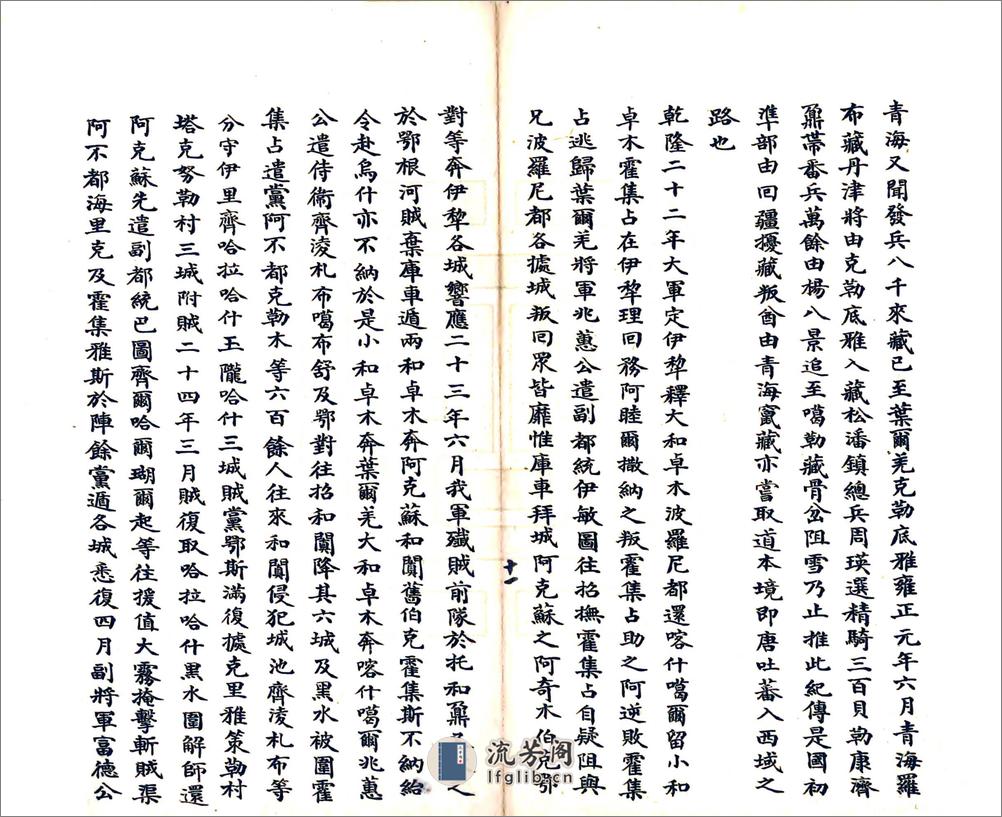 青海又聞發兵八千來藏已至葉爾羌克勒底雅雍正元年六月青海羅
布藏丹津將由克勒底雅入藏松潘鎮總兵周瑛選精騎三百貝勒康濟
鼐帶番兵萬餘由楊八景追至噶勒藏骨岔阻雪乃止推此紀傳是國初
準部由回疆擾藏叛酋由青海竄藏亦嘗取道本境即唐吐蕃入西域之
路也
乾隆二十二年大軍定伊犂釋大和卓木波羅尼都還喀什噶爾留小和
卓木霍集占在伊犂理回務阿睦爾撒納之叛霍集占助之阿逆敗霍集
占逃歸葉爾羌將軍兆蕙公遣副都統伊敏圖往招撫霍集占自疑阻與
兄波羅尼都各據城叛回眾皆靡惟庫車拜城阿克蘇之阿奇木伯克鄂
十一
對等奔伊犂各城響應二十三年六月我軍殲賊前隊於托和鼐
於鄂根河賊棄庫車遁兩和卓木奔阿克蘇和闐舊伯克霍集斯不納紿
令赴烏什亦不納於是小和卓木奔葉爾羌大和卓木奔喀什噶爾兆蕙
公遣侍衛齊淩札布噶布舒及鄂對往招和闐降其六城及黑水被圍霍
集占遣黨阿不都克勒木等六百餘人往來和闐侵犯城池齊淩札布等
分守伊里齊哈拉哈什玉隴哈什三城賊黨鄂斯滿復據克里雅策勒村
塔克努勒村三城附賊二十四年三月賊復取哈拉哈什黑水圍解師還
阿克蘇先遣副都統巴圖齊爾哈爾瑚爾起等往援值大霧掩擊斬賊渠
阿不都海里克及霍集雅斯於陣餘黨遁各城悉復四月副將軍富德公
流芳閣
lfglib.com